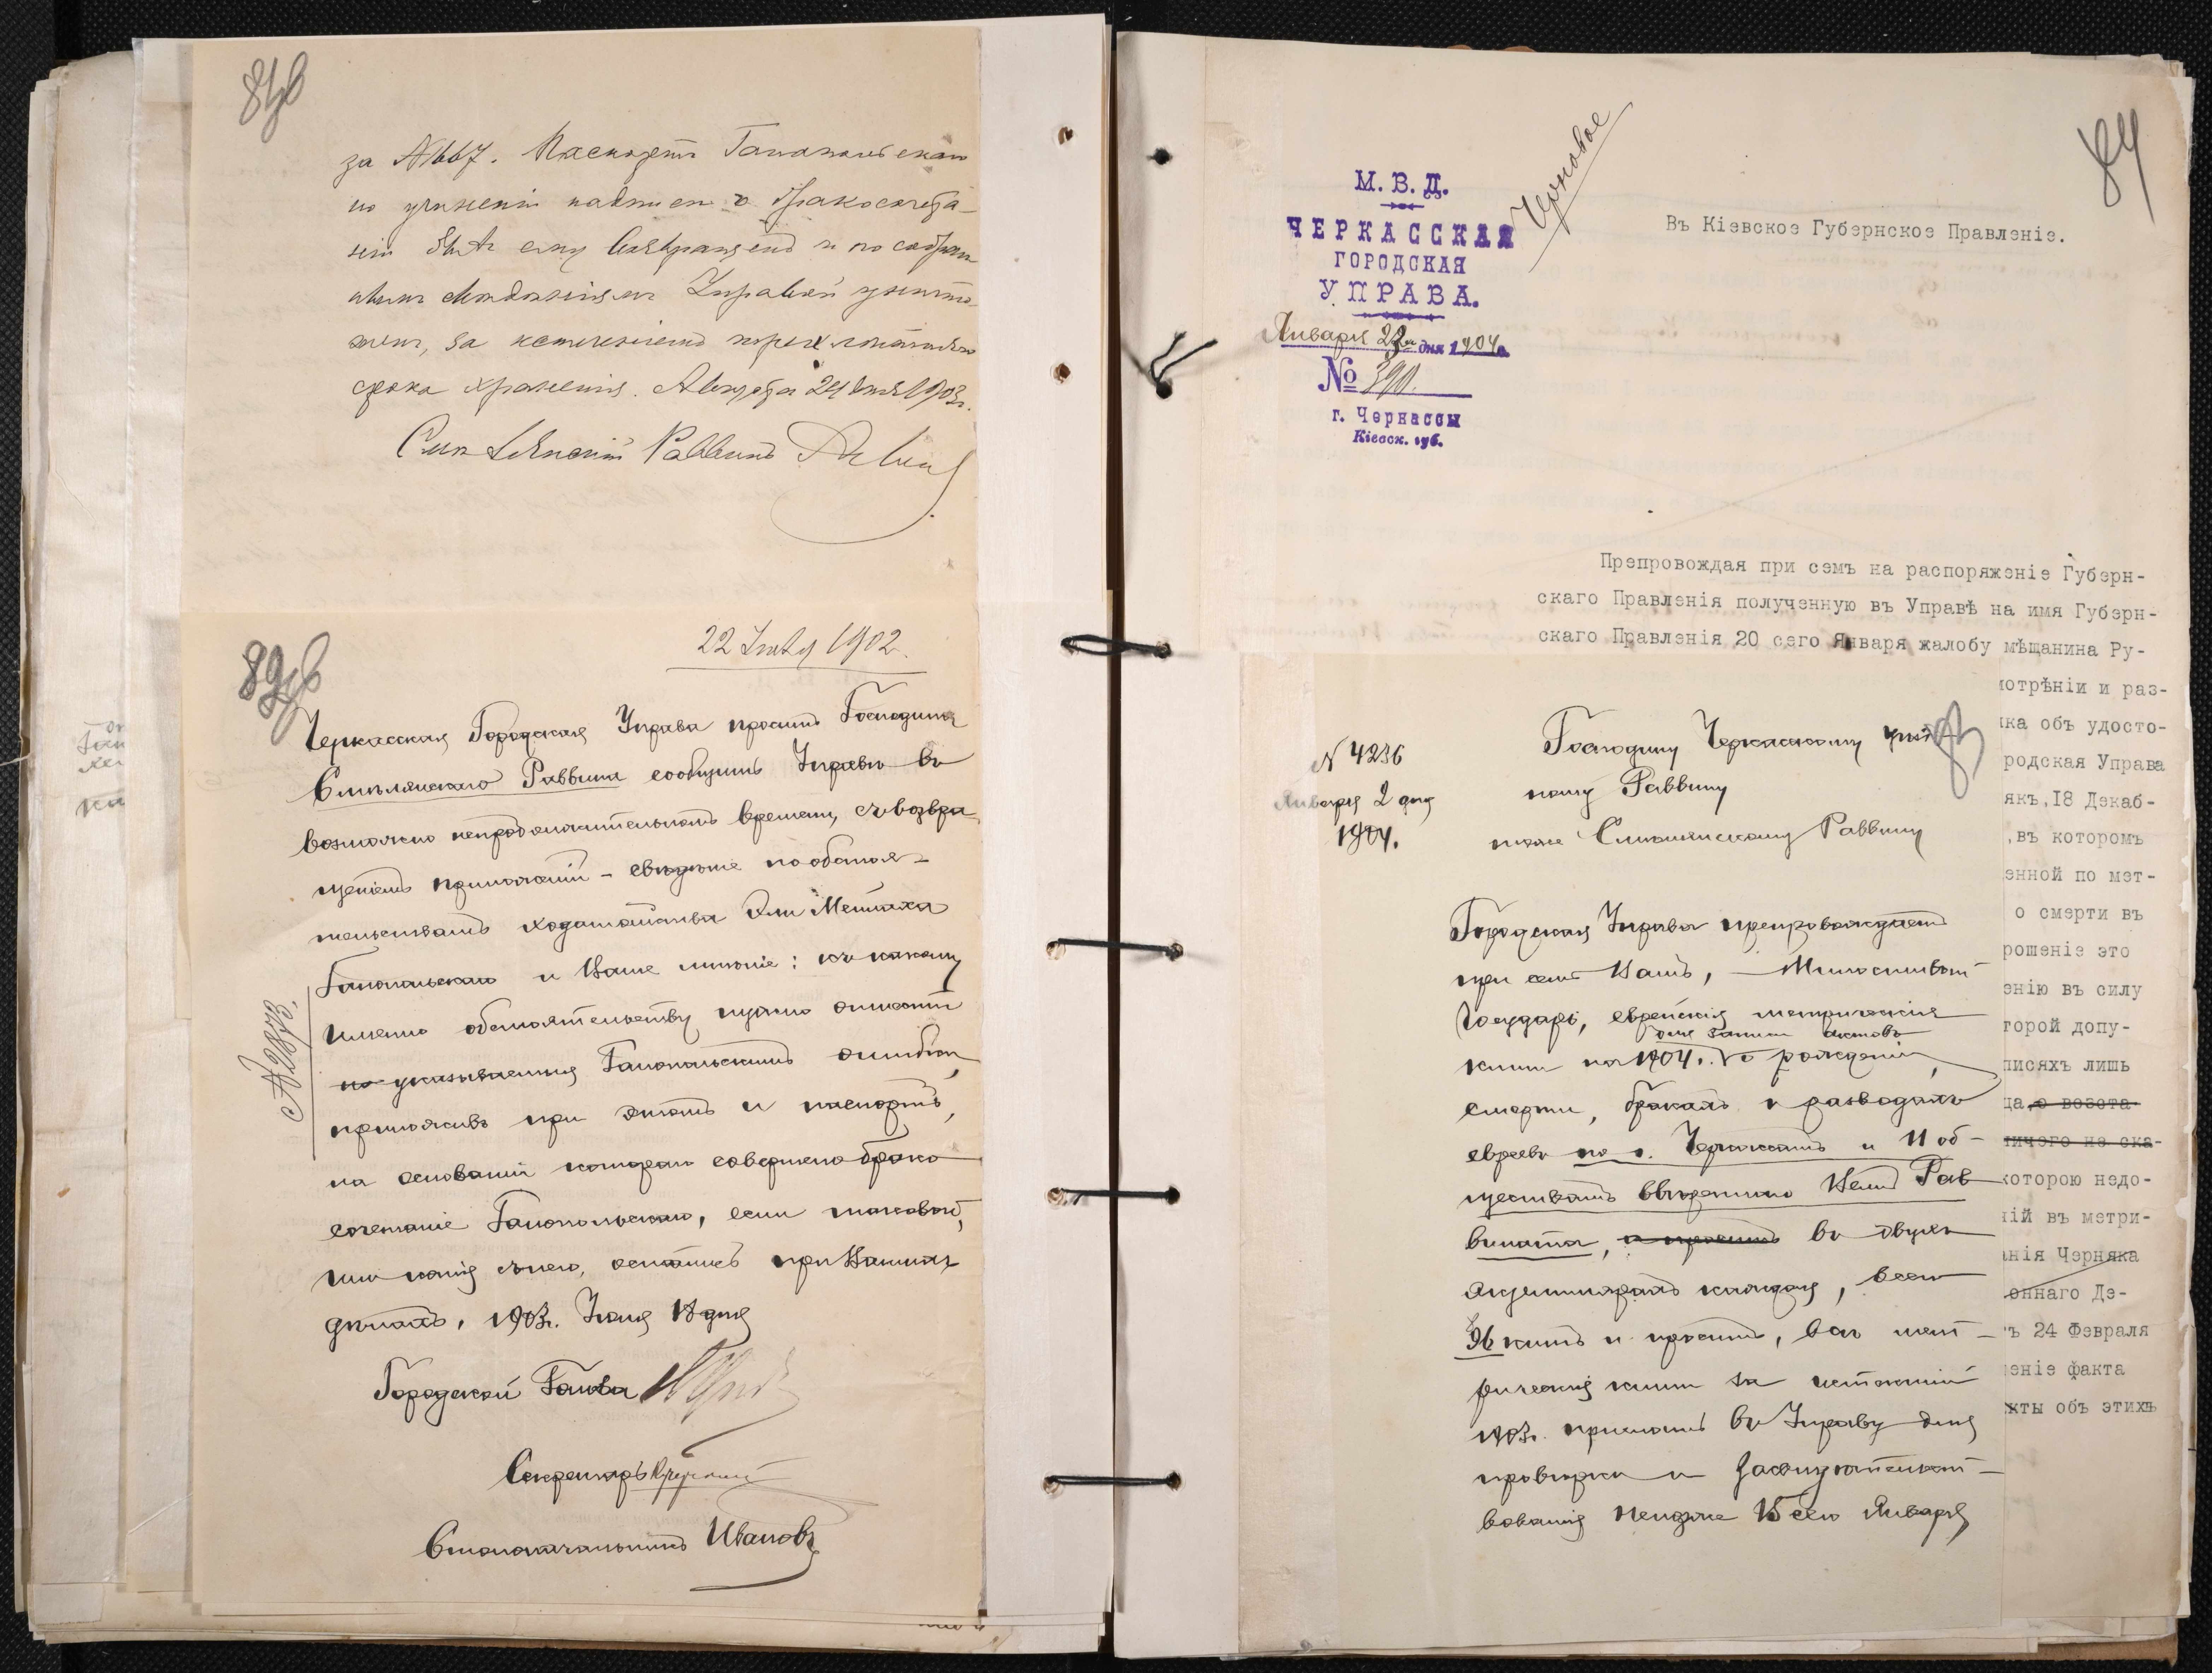 81об
за №667. Паспортъ Гальпольскаго
по учиненіи надписи о бракосочета-
ніи былъ ему возвращенъ и по собран-
нымъ
срока храненія. Августа 24 дня 1903г.
Смѣлянскій Раввинъ
22 1902
82об
Черкасская Городская Управа проситъ Господина
Смѣлянскаго Раввина сообщить Управѣ въ
возможно непродолжительномъ времени, съ возвра-
щеніемъ приложеній – свѣдѣніе по обстоя-
тельствамъ ходатайства
и Ваше мнѣніе: къ какому
именно обстоятельству нужно отнести
указываемыя ошибки,
приложивъ при этомъ и паспортъ,
на основаніи котораго совершено брако
сочетаніе если таковой,
или копія съ него, остались при Вашихъ
дѣлахъ. 1903г. Іюля 18 дня
№2873.
Городской Голова
Секретарь
Столоначальникъ Ивановъ
84
Черновое
М. В. Д.
ЧЕРКАССКАЯ
ГОРОДСКАЯ
УПРАВА.
Января 22 дня 1904г.
№ 390.
г. Черкассы
Кіевск. губ.
Въ Кіевское Губернское Правленіе.
Препровождая при семъ на распоряженіе Губерн-
скаго Правленія полученную въ Управѣ на имя Губерн-
скаго Правленія 20 сего Января жалобу мѣщанина Ру-
мотрѣніи и раз-
ка объ удосто-
родская Управа
якъ,18 Декаб-
,въ которомъ
енной по мет-
о смерти въ
рошеніе это
енію въ силу
торой допу-
писяхъ лишь
да о возста-
ничего не ска-
которою недо-
ній въ метри-
анія Черняка
оннаго Де-
ъ 24 Февраля
еніе факта
кты объ этихъ
83
N 4236
Января 2 дня
1904.
Господину Черкасскому
ному Раввину
тоже Смѣлянскому Раввину
Городская Управа препровождаетъ
при семъ Вамъ, Милостивый
Государь, еврейскія метрическія
для записи актовъ
книги на 1904г. о рожденіи,
смерти, бракахъ и разводахъ
евреевъ по г. Черкассамъ и 11 об-
ществамъ ввѣреннаго Вамъ Рав
вината, и проситъ въ двухъ
экземплярахъ каждая, всего
96 книгъ и проситъ, всѣ мет-
рическія книги за истекшій
1903г. прислать въ Управу для
провѣрки и засвидѣтельст-
вованія непозже 15 сего Января